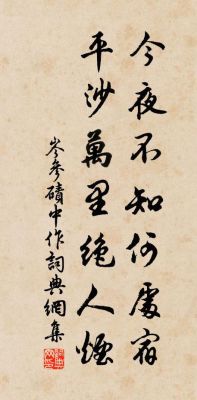 今夜不知何處宿
平沙萬里絕人煙
岑參磧中作詞典網集